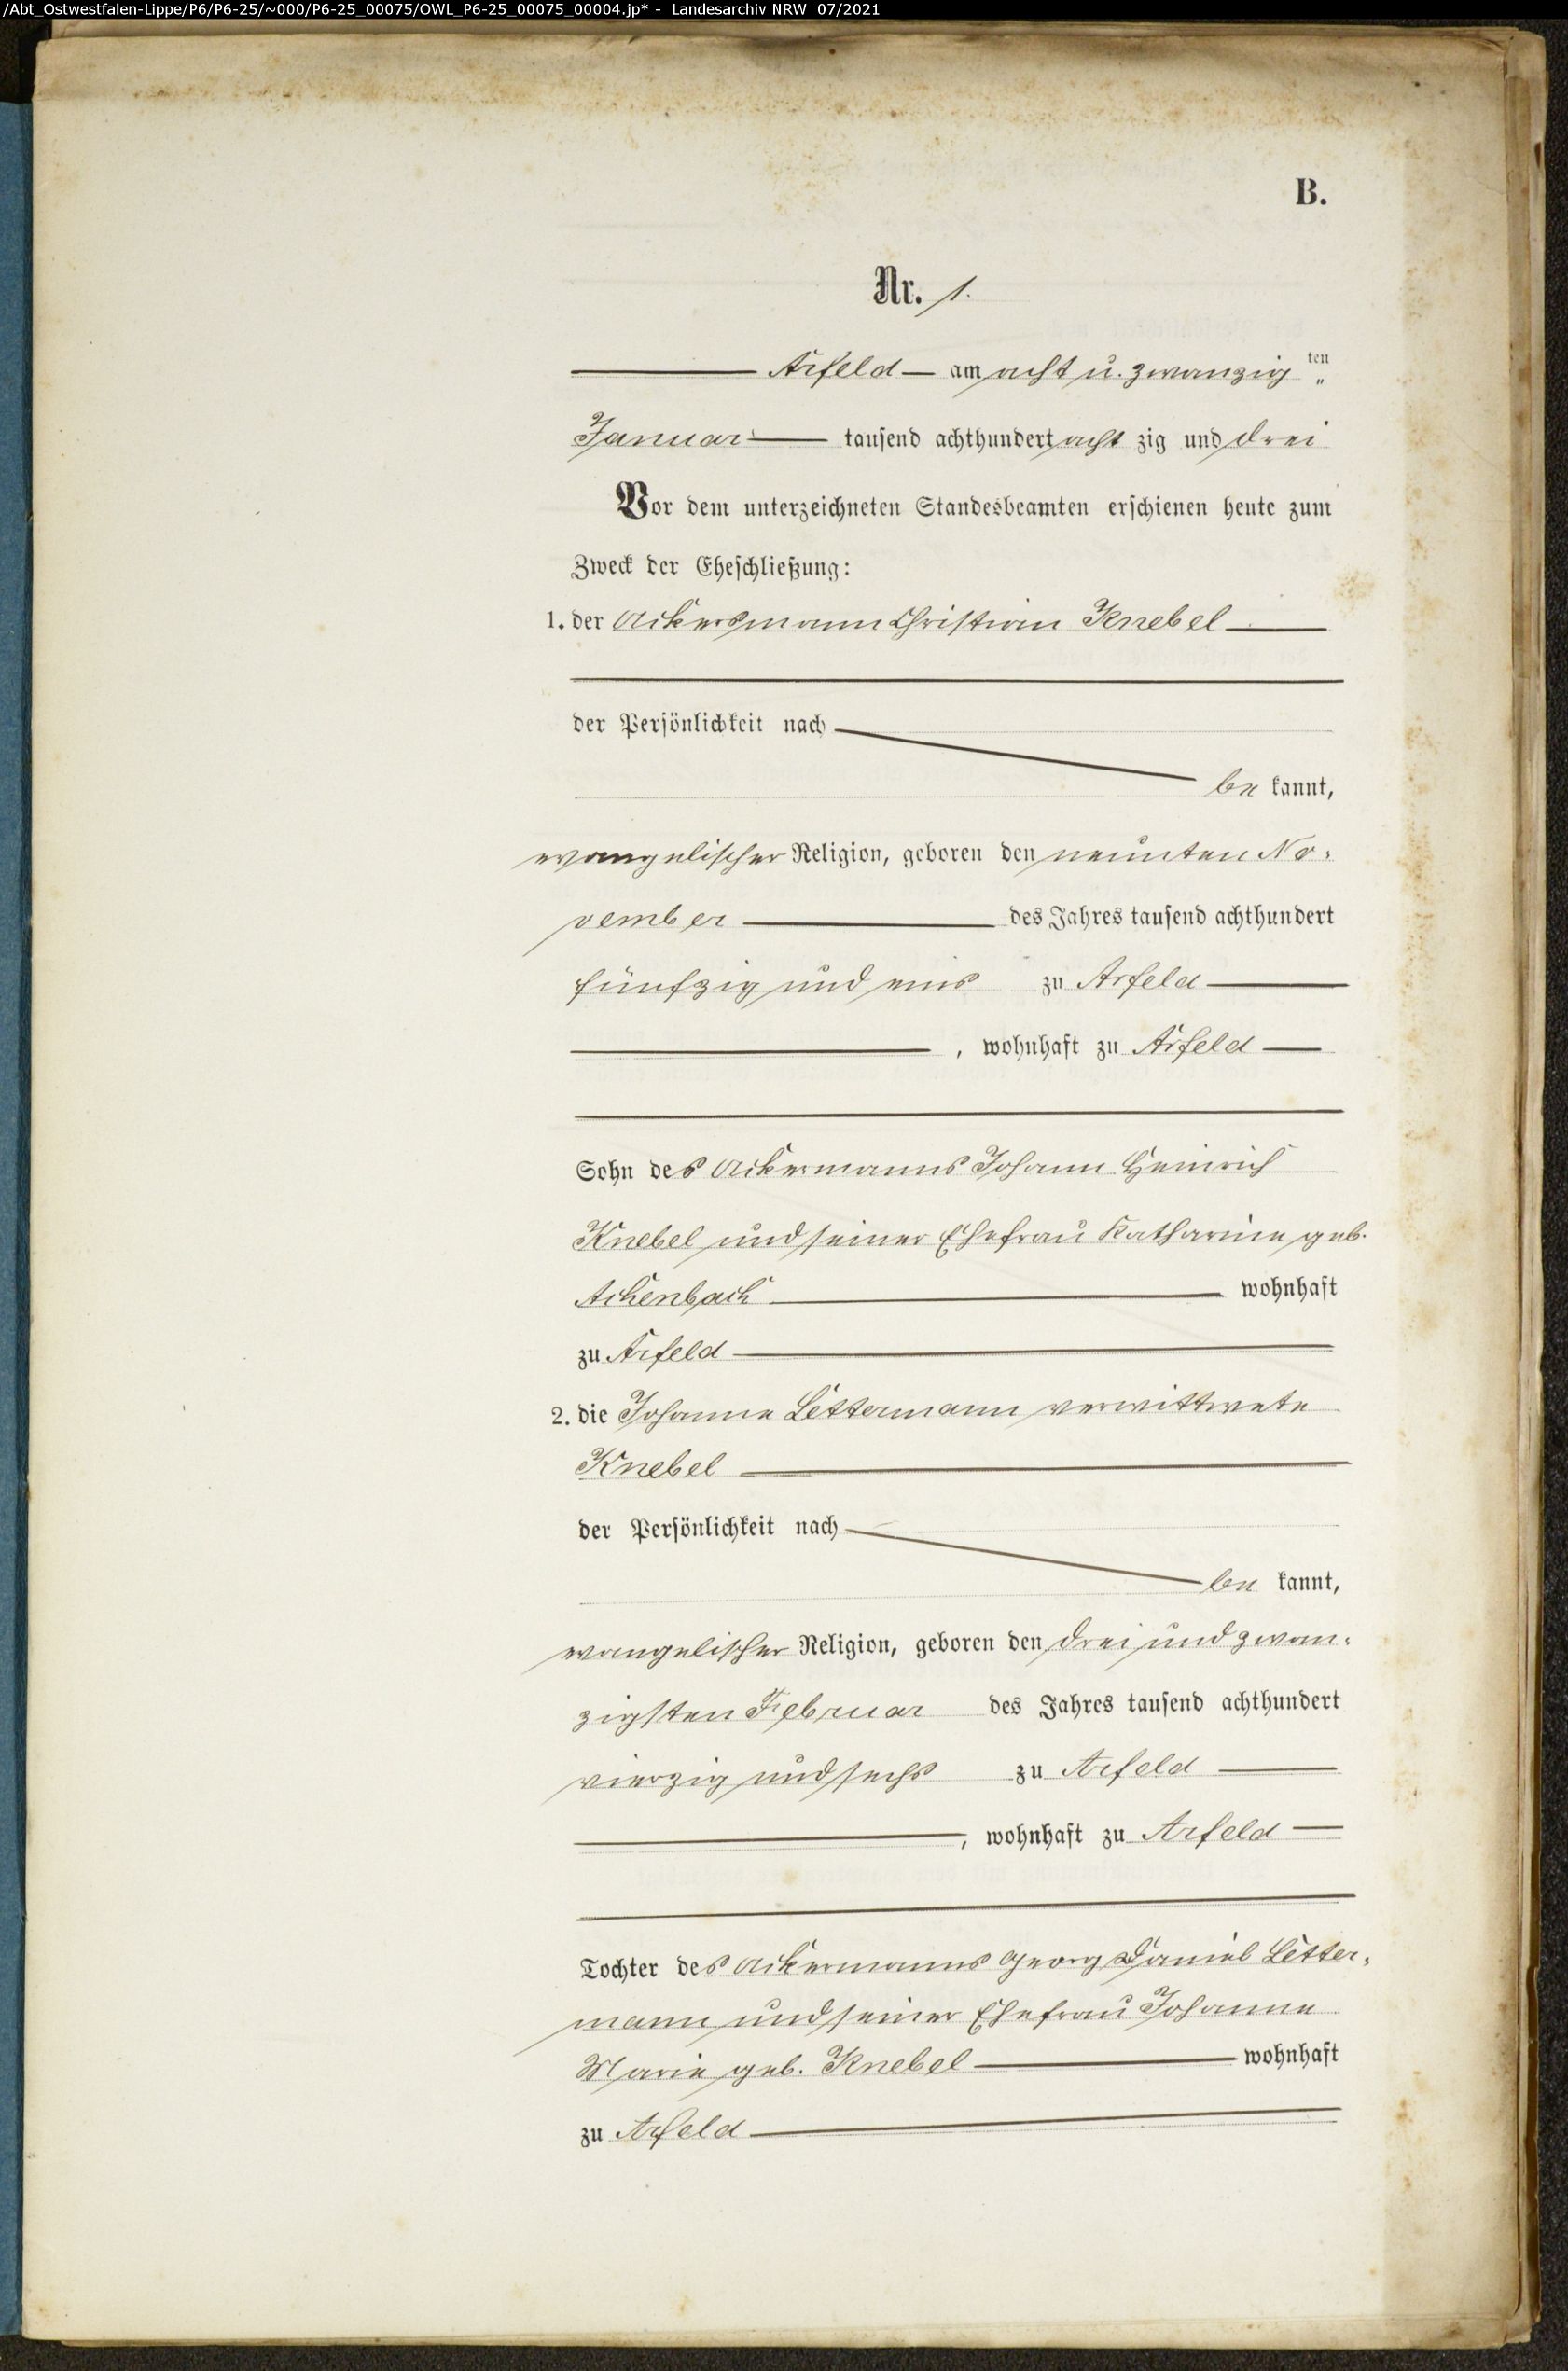 /Abt_Ostwestfalen-Lippe/P6/P6-25/~000/P6-25_00075/OWL_P6-25_00075_00004.jp* - Landesarchiv NRW 07/2021
B.
Nr. 1.
Arfeld — am acht u. zwanzig ten „
Januar — tausend achthundert acht zig und drei
Vor dem unterzeichneten Standesbeamten erschienen heute zum
Zweck der Eheschließung:
1. der Ackersmann Christian Knebel
der Persönlichkeit nach
be kannt,
evangelischer Religion, geboren den neunten No-
vember des Jahres tausend achthundert
fünfzig und eins zu Arfeld
, wohnhaft zu Arfeld
Sohn des Ackermanns Johann Heinrich
Knebel und seiner Ehefrau Katharine geb.
Achenbach wohnhaft
zu Arfeld
2. die Johanne Lettermann verwittwete
Knebel
der Persönlichkeit nach
be kannt,
evangelischer Religion, geboren den drei und zwan-
zigsten Februar des Jahres tausend achthundert
vierzig und sechs zu Arfeld
, wohnhaft zu Arfeld
Tochter des Ackermanns Georg Daniel Letter-
mann und seiner Ehefrau Johanne
Marie geb. Knebel wohnhaft
zu Arfeld